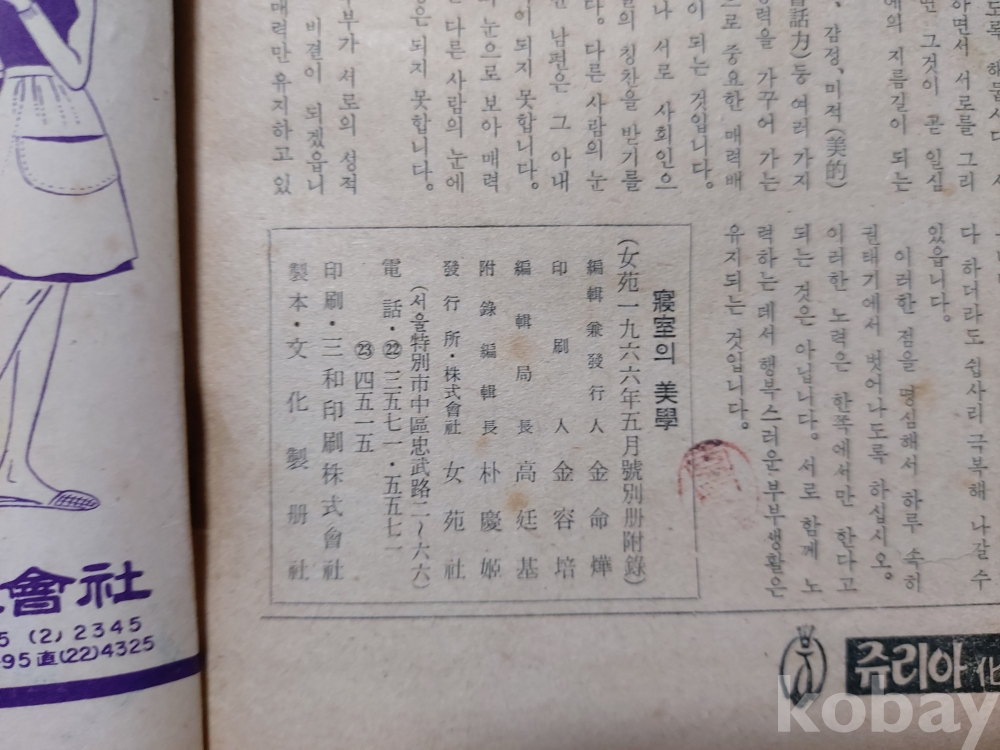 도록 해봅시다. 서
하면서 서로를 그리
면 그것이 곧 일심
에의 지름길이 되는
감정, 미적(美的)
話力)등 여러 가지
력을 가꾸어 가는
으로 중요한 매력배
이 되는 것입니다.
나 서로 사회인으
들의 칭찬을 받기를
다. 다른 사람의 눈
은 남편은 그 아내
이 되지 못합니다.
의 눈으로 보아 매력
은 다른 사람의 눈에
은 되지 못합니다.
부가 서로의 성적
비결이 되겠읍니
매력만 유지하고 있
다 하더라도 쉽사리 극복해 나갈 수
있읍니다.
이러한 점을 명심해서 하루 속히
권태기에서 벗어나도록 하십시오.
이러한 노력은 한쪽에서만 한다고
되는 것은 아닙니다. 서로 함께 노
력하는 데서 행복스러운 부부생활은
유지되는 것입니다.
寢室의 美學
(女苑一九六六年五月號別册附錄)
編輯兼發行人 金命燁
印刷人 金容培
編輯局長 高廷基
附錄編輯長 朴慶姬
發行所・株式會社 女苑社
(서울特別市中區忠武路二～六六)
電話・㉒三五七一・五五七一
㉓四五一五
印刷・三和印刷株式會社
製本・文化製册社
會社
5 (2) 2345
95 直(22)4325
쥬리아 化
kobay